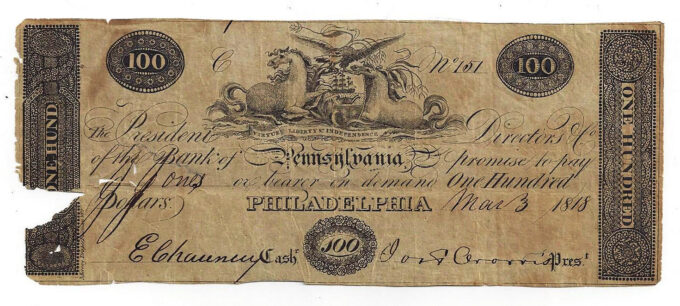 100 C No 151 100
ONE HUND
ONE HUNDRED
VIRTUE LIBERTY & INDEPENDENCE
The President Directors & Co
of the Bank of Pennsylvania promise to pay
Jones or bearer on demand One Hundred
Dollars. PHILADELPHIA Mar 3 1818
E Chauncey Cashr. 100 Jos Morris Prest